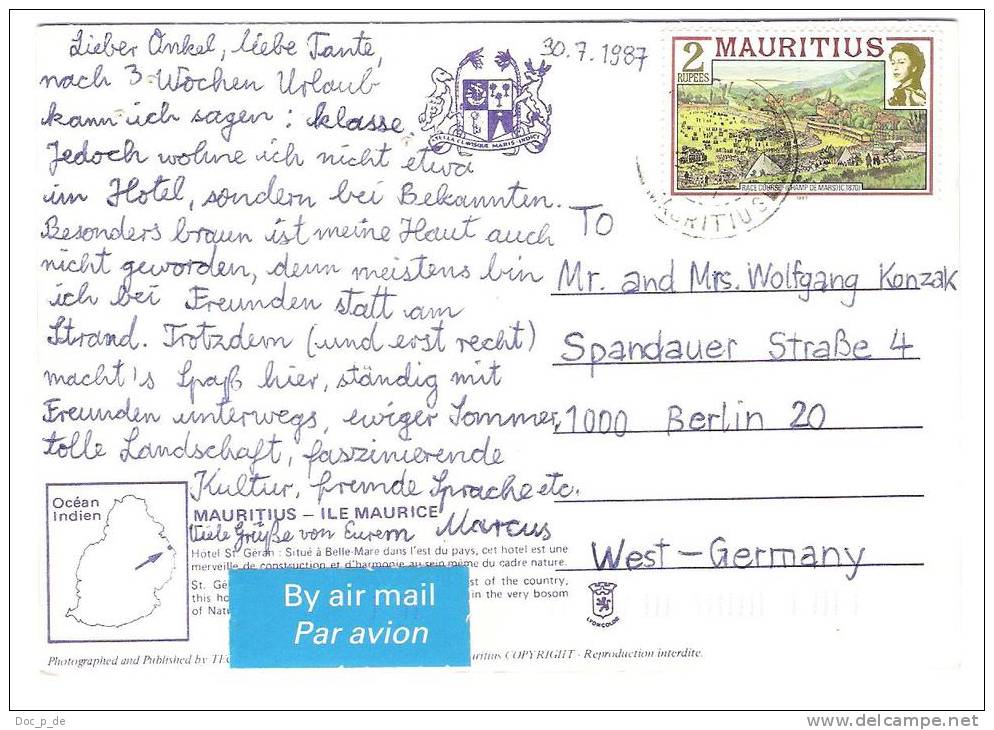 Lieber Onkel, liebe Tante,
nach 3 Wochen Urlaub
kann ich sagen: klasse
Jedoch wohne ich nicht etwa
im Hotel, sondern bei Bekannten.
Besonders braun ist meine Haut auch
nicht geworden, denn meistens bin
ich bei Freunden statt am
Strand. Trotzdem (und erst recht)
macht's Spaß hier, ständig mit
Freunden unterwegs, ewiger Sommer,
tolle Landschaft, faszinierende
Kultur, fremde Sprache etc.
Viele Grüße von Eurem Marcus
30.7.1987
STELLA CLAVISQUE MARIS INDICI
2
RUPEES
MAURITIUS
RACE COURSE (CHAMP DE MARS) (C.1870)
1987
MAURITIUS
To
Mr. and Mrs. Wolfgang Konzak
Spandauer Straße 4
1000 Berlin 20
West-Germany
Océan
Indien
MAURITIUS – ILE MAURICE
Hôtel St. Géran : Situé à Belle-Mare dans l'est du pays, cet hotel est une
merveille de construction et d'harmonie au sein même du cadre nature.
St. Gé st of the country,
this ho in the very bosom
of Natu
By air mail
Par avion
LYONCOLOR
Photographed and Published by uritius COPYRIGHT - Reproduction interdite.
Doc_p_de
www.delcampe.net